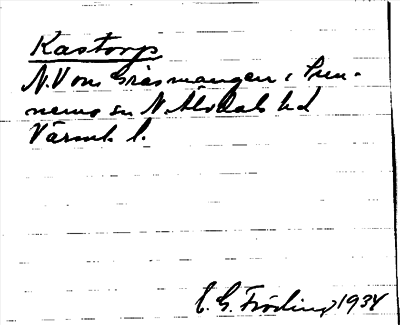 Kastorp
N. V om Gräsmangen i Sun-
nemo sn N. Älvdals hd
Värml. l.
C. G. Fröding 1934